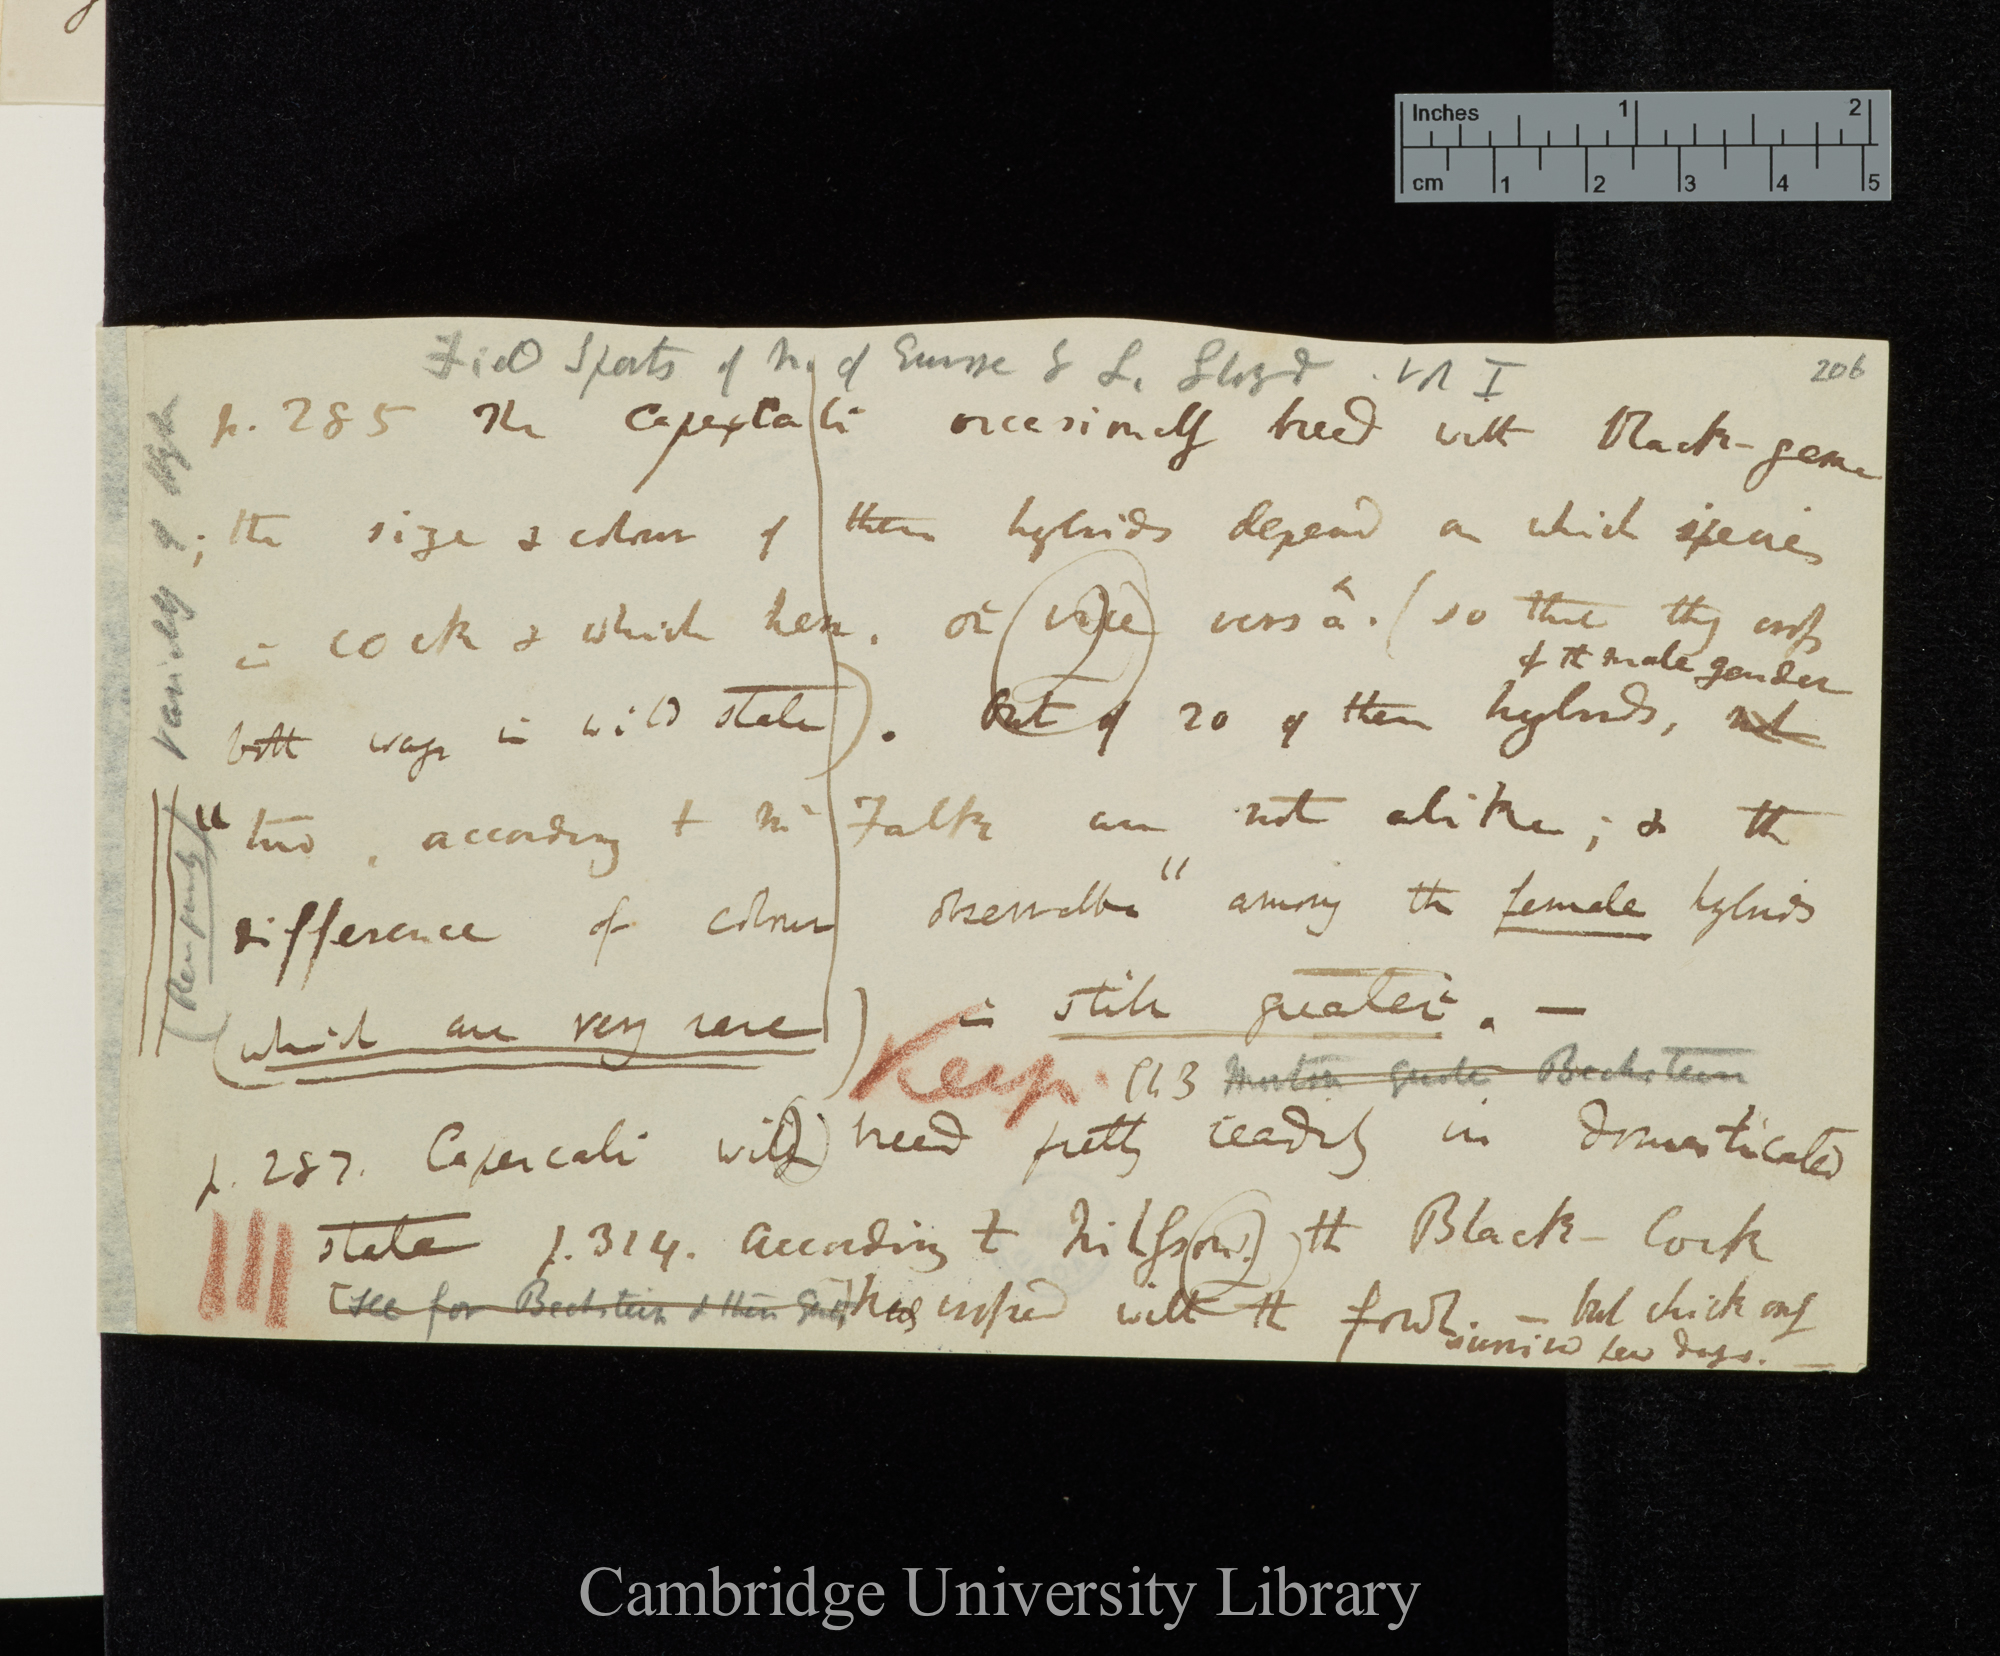 Inches 1 2
cm 1 2 3 4 5
Field Sports of N. of Europe by L. Lloyd. Vol I
206
p. 285 The Capercali occasionally breed with Black-game
; the size & colour of these hybrids depend on which species
is cock & which hen, or vice versâ. (so that they cross
of the male gender
both ways in wild state). Out of 20 of these hybrids, not
"two, according to Mr Falk are not alike; & the
difference of colour observable" among the female hybrids
(which are very rare) is still greater. —
Keep. Ch 3 Morton quotes Bechstein
p. 287. Capercali will breed pretty readily in domesticated
state p. 314. According to Nilsson. the Black-Cock
[see for Bechstein & then has crossed with the fowl. — but chick only
survived few days. —
Variability of Hybr
Cambridge University Library